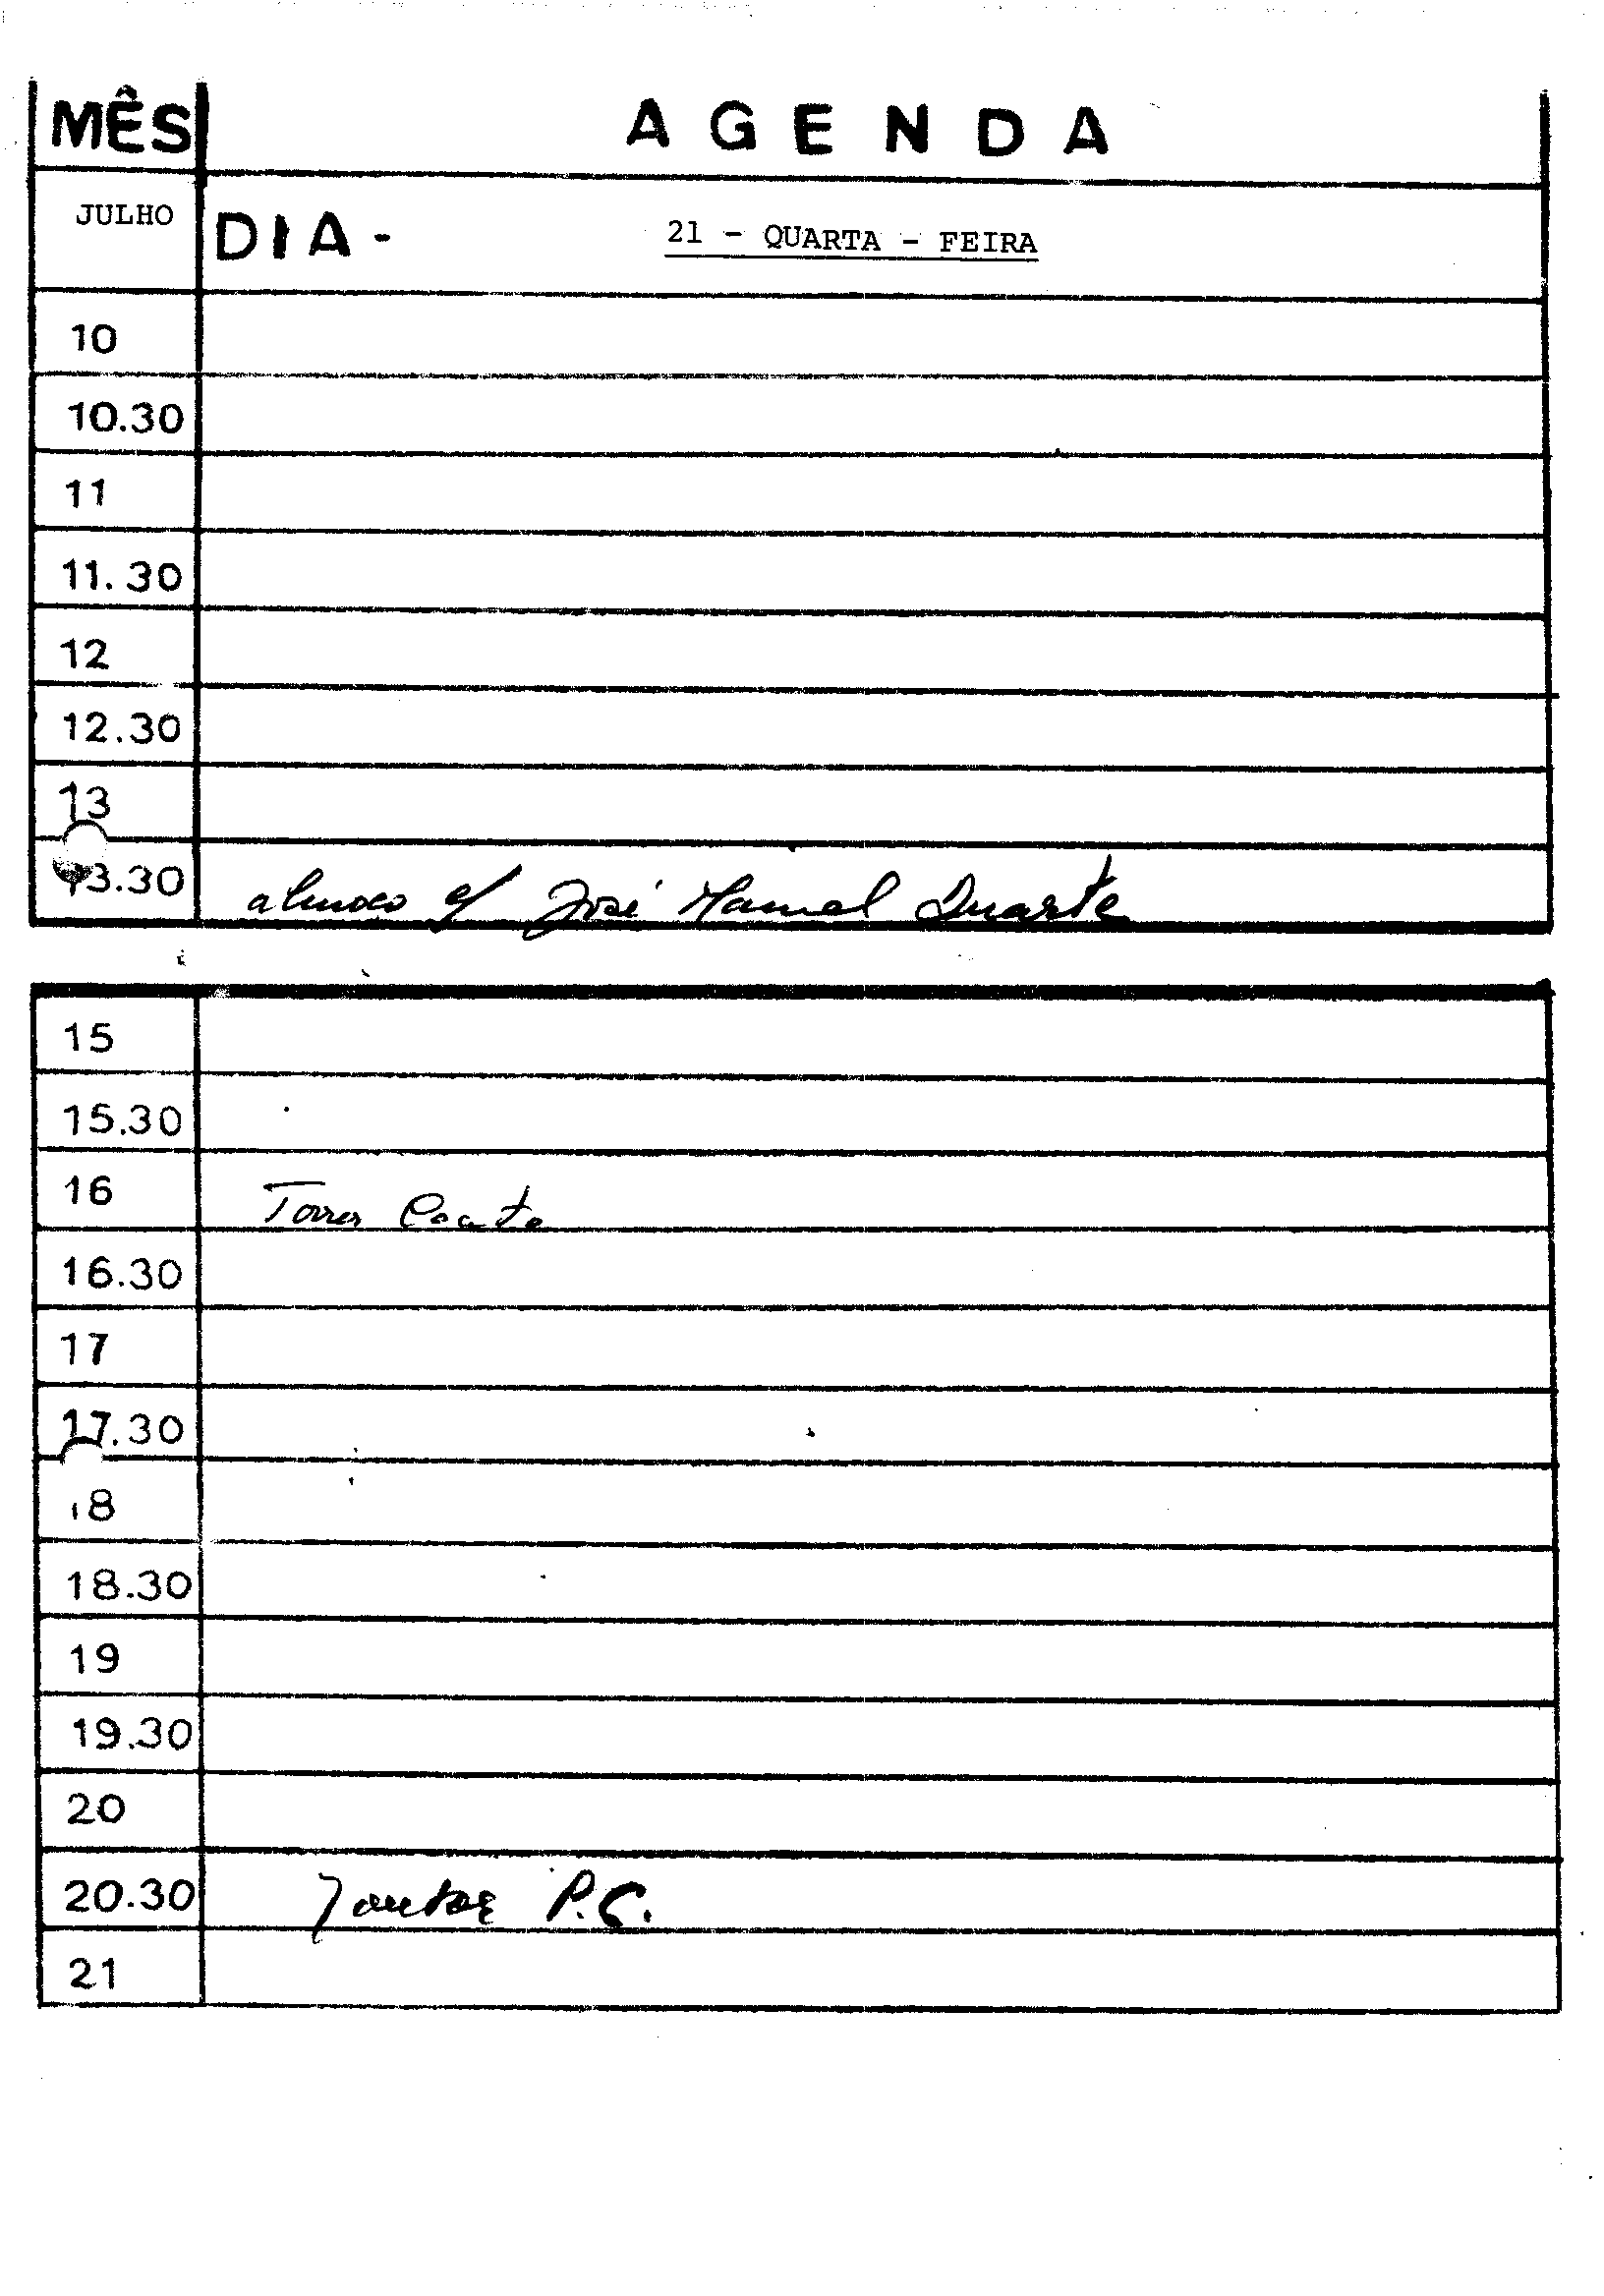 MÊS AGENDA
JULHO DIA - 21 - QUARTA - FEIRA
10
10.30
11
11.30
12
12.30
13
13.30 almoço c/ José Manuel Duarte
15
15.30
16 Torres Couto
16.30
17
17.30
18
18.30
19
19.30
20
20.30 Jantar P.C.
21